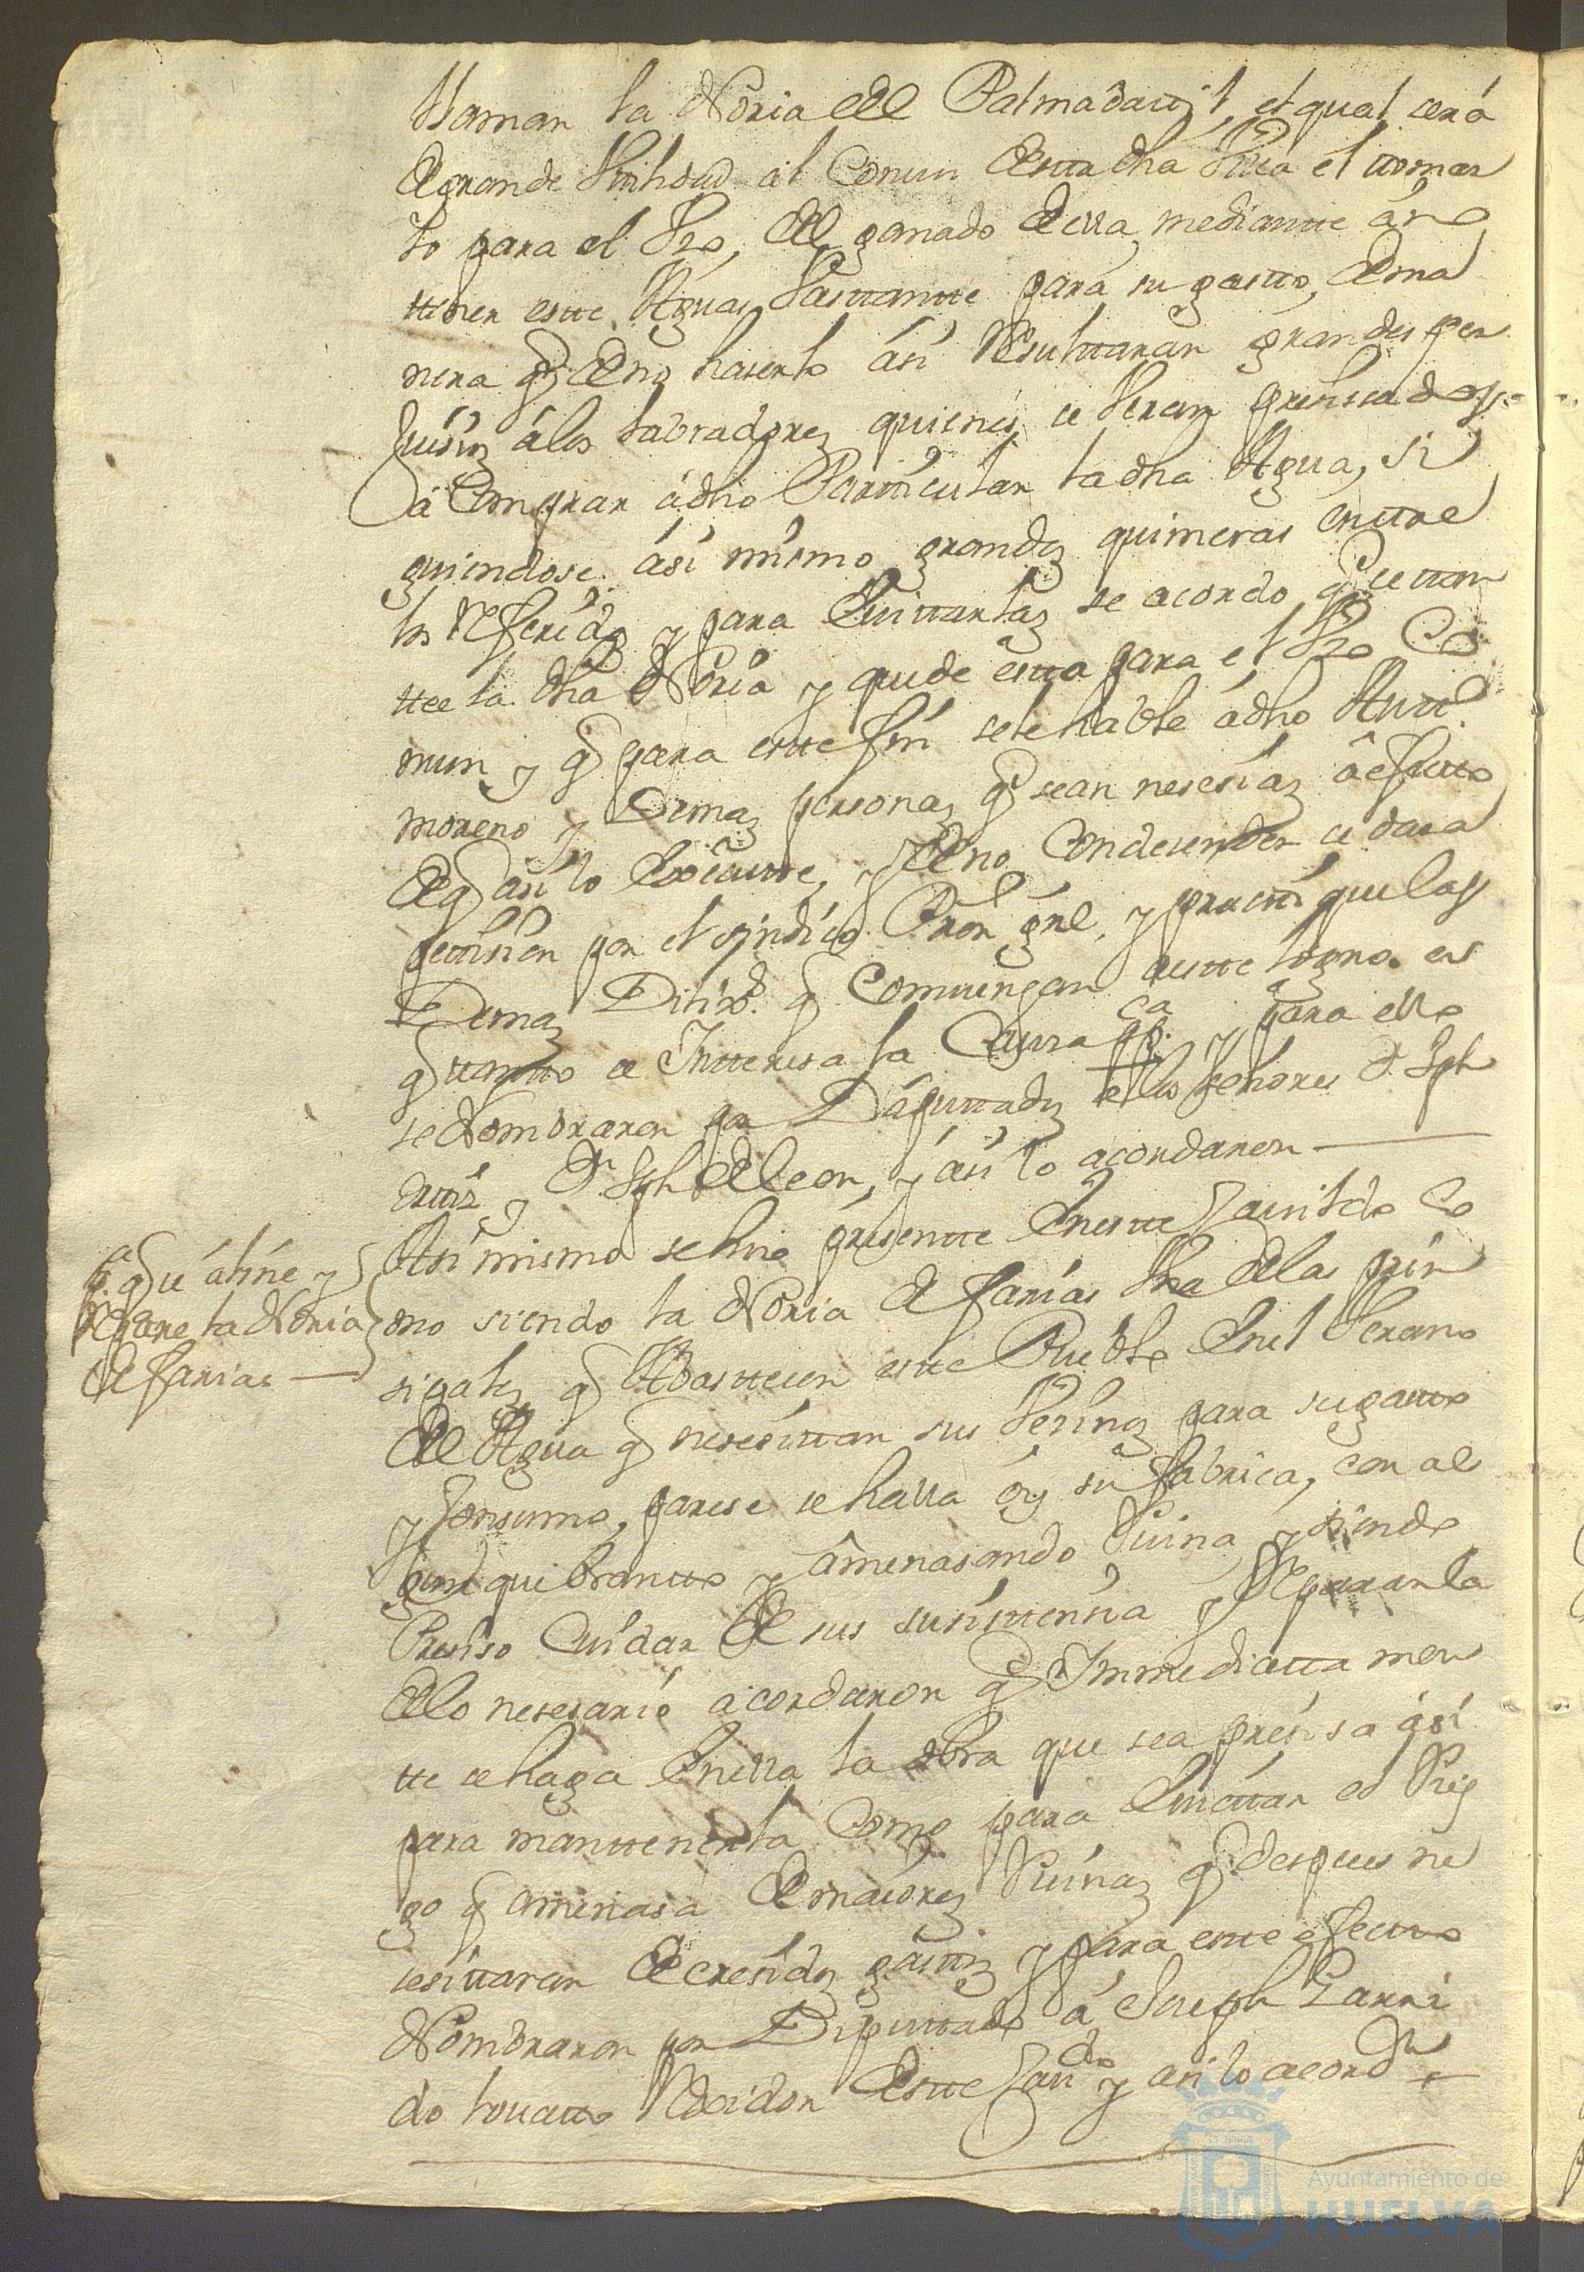 llaman la Noria del Palmadauil, el qual será
de grande Vtilidad al Comun de estta dha Villa el ttomar
lo para el Vso, del ganado de ella, mediantte á no
ttener estte Aguas bastantte para su gastto, de ma
nera q de no haserlo ási Resulttaran grandes per
juisios á los labradores quienes se Veran presisados
á Comprar á dho Partticular la dha Agua, si
guiendose ási mismo grandes quimeras enttre
los Referidos y para Euittarlas se acordo q se ttan
ttee la dha Noria y quede estta para el Vso Co
mun y q para estte fin se le hable á dho Antto
moreno y Demas personas q sean nesesias á efectto
de q asi lo Execútte, y de no Condesender se dara
pettision por el sindico Pror gnl, y practtiquelas
Demas Dilixs q Comuengan a estte logro en
q ttantto se Intteresa la Causa pca y para ello
se Nombraron por Diputtados a los señores Dn Jph
Ruiz y Dn Jph de Leon, y ási lo acordaron
Asi mismo se hiso presentte en estte Cauildo Co
mo siendo la Noria de farias Vna de las prin
sipales q Abasttecen estte Pueblo en el Verano
del Agua q nesesittan sus Vesinos para su gastto
y Consumo, parese se halla oy su fabrica, con al
gun quebrantto y ámenasando Ruina, y siendo
Presiso Cuidar de sus susisttensia y Repararla
de lo nesesario acordaron q Inmediatta men
tte se haga en ella la obra que sea presisa ási
para manttenerla Como para Euittar el Ries
go q amenasa de maiores Ruinas q despues ne
sesittaran de cresidos gasttos y para estte efectto
Nombraron por Diputtado á Joseph Garri
do louatto Rexidor de estte Cauido y asi lo acordn
pa q se áliñe y
Repare la Noria
de farias
Ayuntamiento de
HUELVA